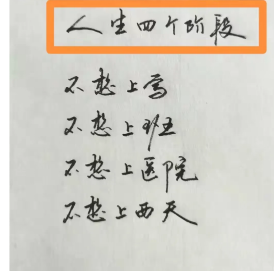 人生四个阶段
不想上学
不想上班
不想上医院
不想上西天